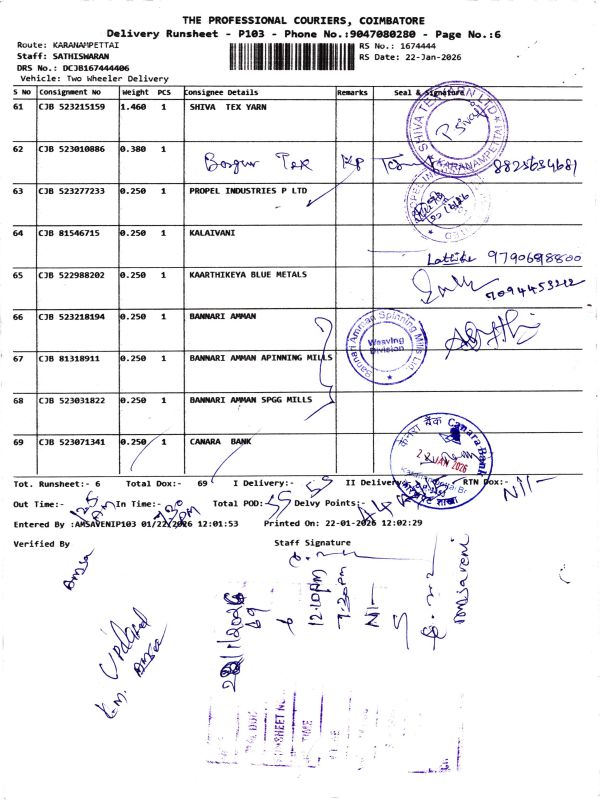 THE PROFESSIONAL COURIERS, COIMBATORE
Delivery Runsheet - P103 - Phone No.:9047080280 - Page No.:6
Route: KARANAMPETTAI RS No.: 1674444
Staff: SATHISWARAN RS Date: 22-Jan-2026
DRS No.: DCJB167444406
Vehicle: Two Wheeler Delivery
S No Consignment No Weight PCS Consignee Details Remarks Seal & Signature
61 CJB 523215159 1.460 1 SHIVA TEX YARN
SHIVA TEX YARN LTD
KARANAMPETTAI
62 CJB 523010886 0.380 1
8825634681
63 CJB 523277233 0.250 1 PROPEL INDUSTRIES P LTD
64 CJB 81546715 0.250 1 KALAIVANI
9790698800
65 CJB 522988202 0.250 1 KAARTHIKEYA BLUE METALS
7094453212
66 CJB 523218194 0.250 1 BANNARI AMMAN
Bannari Amman Spinning Mills Ltd
Weaving
Division
67 CJB 81318911 0.250 1 BANNARI AMMAN APINNING MILLS
68 CJB 523031822 0.250 1 BANNARI AMMAN SPGG MILLS
69 CJB 523071341 0.250 1 CANARA BANK
केनरा बैंक Canara Bank
22 JAN 2026
Tot. Runsheet:- 6 Total Dox:- 69 I Delivery:- 55 II Delivery:- RTN Dox:- Nil-
Out Time:- In Time:- 7.30 PM Total POD:- 55 Delvy Points:-
Entered By :AMSAVENIP103 01/22/2026 12:01:53 Printed On: 22-01-2026 12:02:29
Verified By Staff Signature
Updated
69
6
12.10PM
7.30PM
Nil-
5
Amsaveni